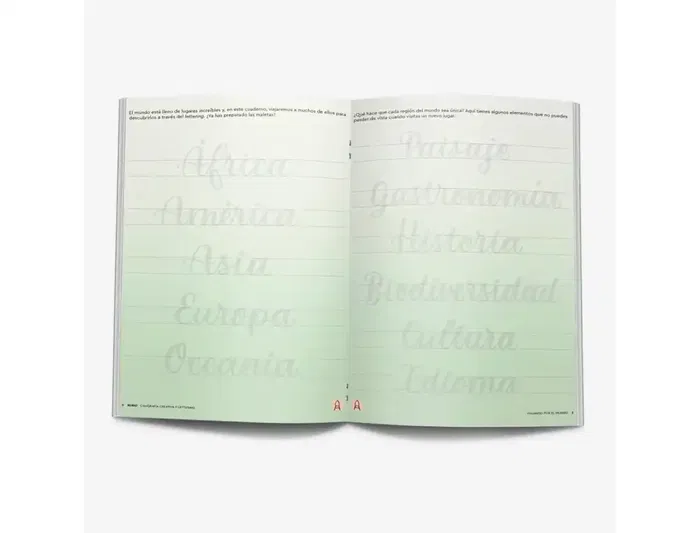 El mundo está lleno de lugares increíbles y, en este cuaderno, viajaremos a muchos de ellos para
descubrirlos a través del lettering. ¿Ya has preparado las maletas?
África
América
Asia
Europa
Oceanía
¿Qué hace que cada región del mundo sea única? Aquí tienes algunos elementos que no puedes
perder de vista cuando visitas un nuevo lugar.
Paisaje
Gastronomía
Historia
Biodiversidad
Cultura
Idioma